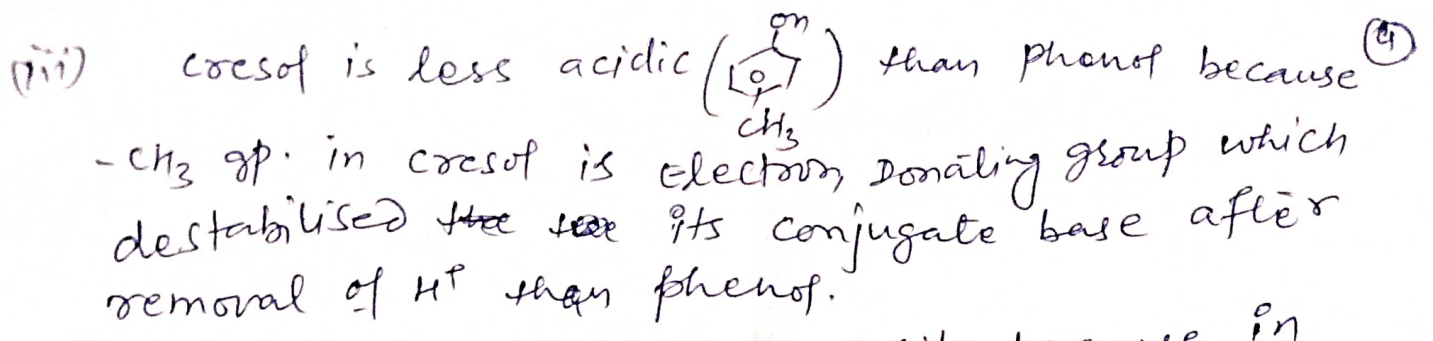 (iii) cresol is less acidic (OH CH3) than phenol because 4
-CH3 gp. in cresol is Electron Donating group which
destabilised its conjugate base after
removal of H+ than phenol.
in